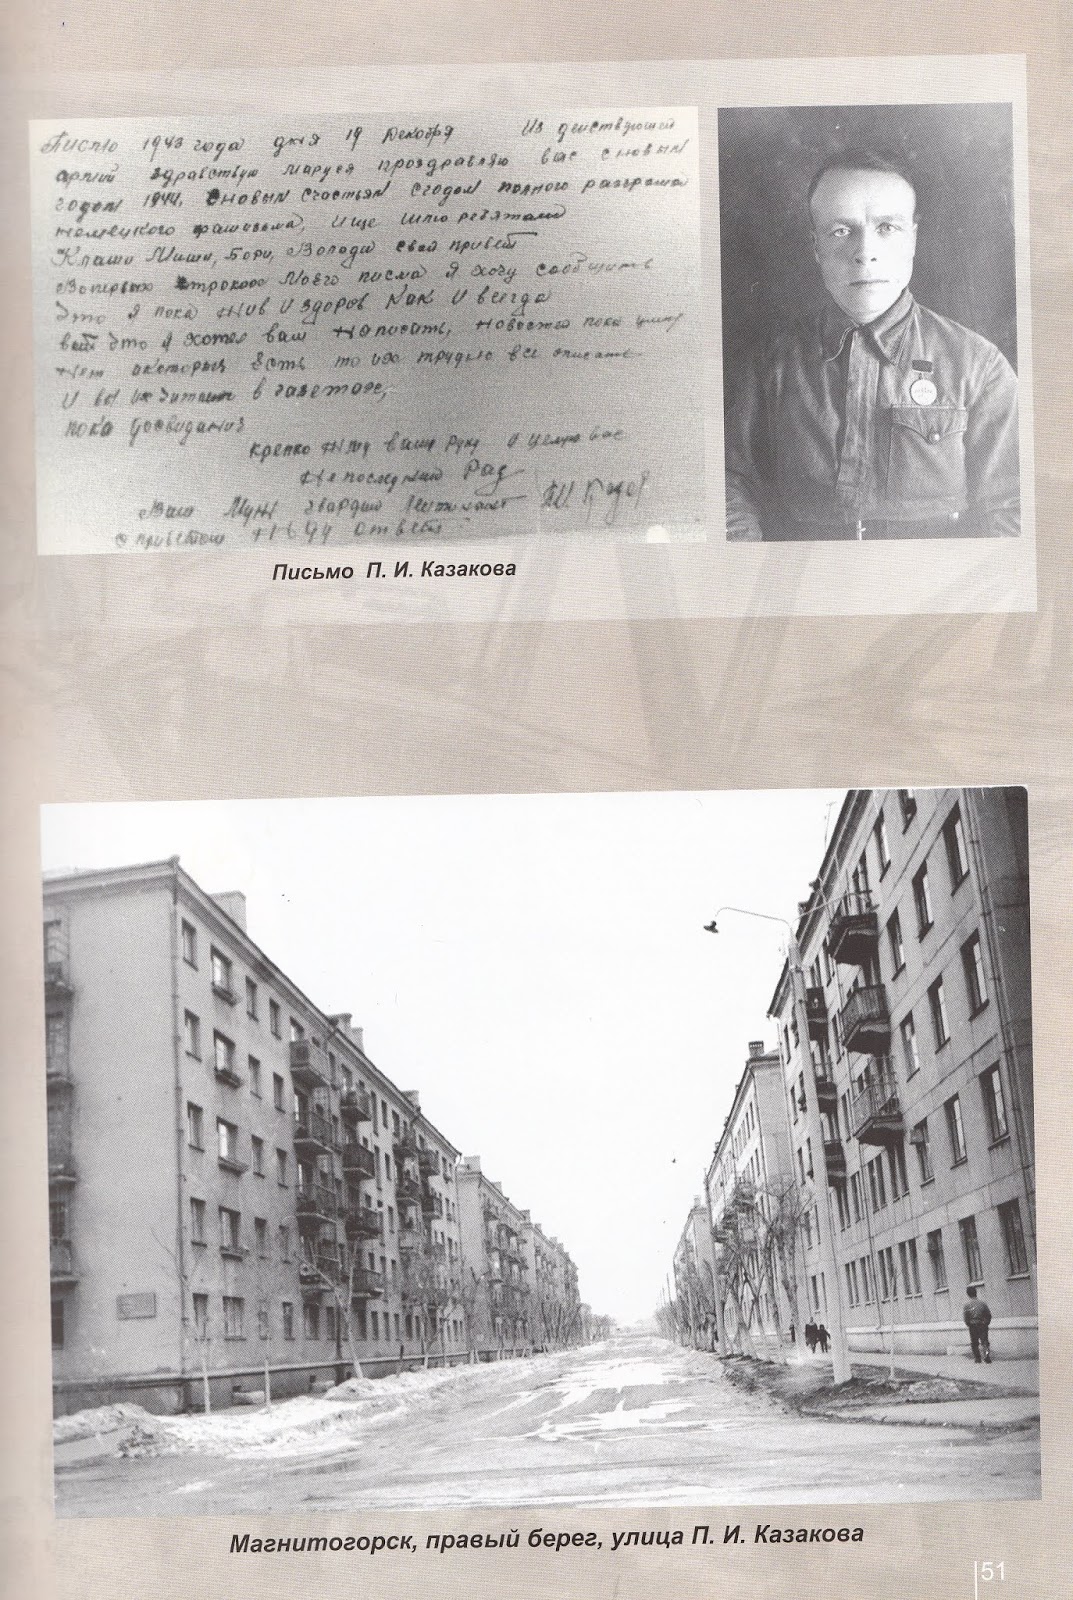 Писмо 1943 года дня 19 декабря Из действующей
армий здравствую маруся проздравляю вас с новым
годом 1944, с новым счастьям сгодом полного разгрома
немецкого фашизьма, ище шлю ребятам
Клаши Миши, Бори, Володи свой привет
Вопервых строкаю моего писма я хочу сообщить
Што я пока жив и здоров как и всегда
вот што я хотел вам написать, новостей пока
нет которыя есть то их трудно все описать
и вы их читаете в газетах,
пока Досвидания
крепко жму вашу руку и целую вас
Не последний Раз
Ваш Муж Гвардий Лейтенант
с приветом жду ответа
Письмо П. И. Казакова
Магнитогорск, правый берег, улица П. И. Казакова
51